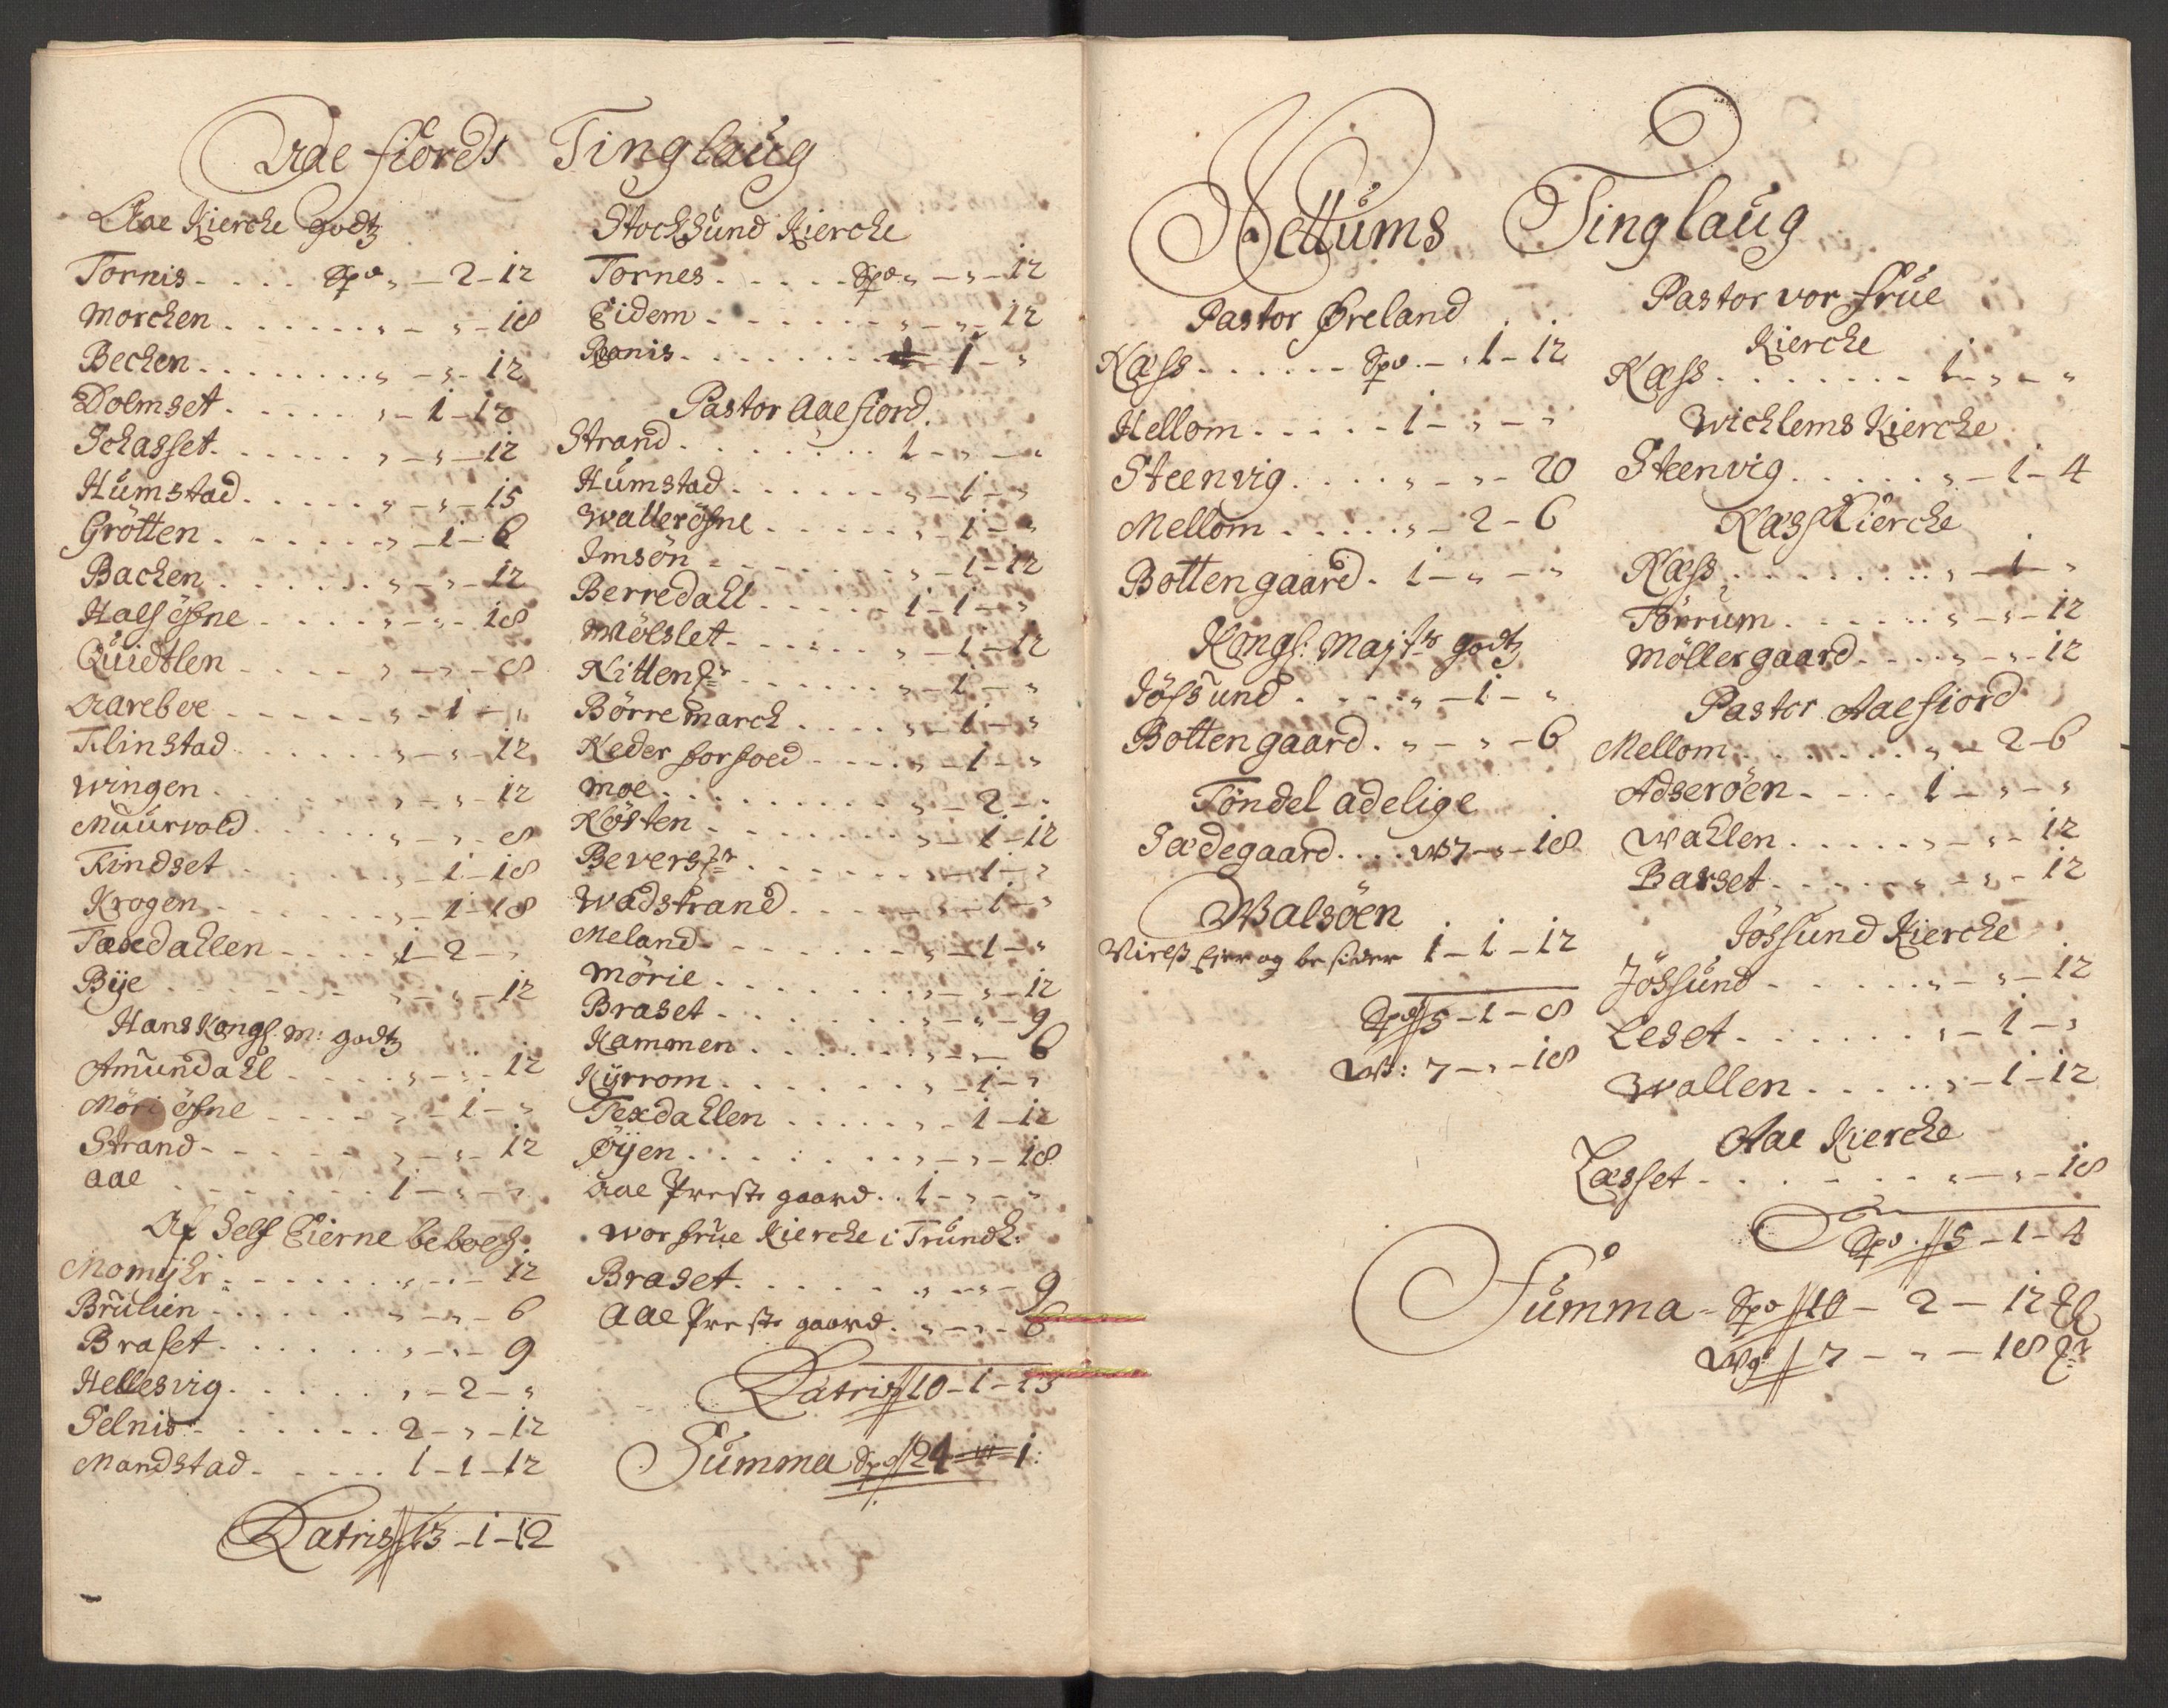 Aae fiords Tinglaug
Aae Kierche godtz
Tornis - . . . Spd " - 2 - 12
Morchen . . . . . . " - " - 18
Bechen . . . . . . . . " - " - 12
Dolmset . . . . . . " - 1 - 12
Schasset . . . . . . " - " - 12
Humstad . . . . . . " - " - 15
Grötten . . . . . . " - 1 - 6
Bachen . . . . . . " - " - 12
Halsösne . . . . . " - " - 18
Quidtlen . . . . . " - " - 8
Aareboe - - - - - " - 1 - "
Flinstad . . . . . " - " - 12
Wingen . . . . . . " - " - 12
Muurvold . . . . . " - " - 8
Findset . . . . . . " - 1 - 18
Krogen - . . . . . " - 1 - 18
Taxdahlen - . . . 1 - 2 - "
Bÿe - - - - - - " - " - 12
Hans Kongl. M: godtz
Amundahl - . . . . " - " - 12
Möri ösne - - - . " - 1 - "
Strand - . . . . . " - " - 12
Aae - . . . . . . 1 - " - "
Af Self Eierne beboes
Momÿhr - . . . . . " - " - 12
Brulien . . . . . . " - " - 6
Braset . . . . . . " - " - 9
Hellesvig . . . . . " - 2 - "
Selnis - . . . . . 2 - " - 12
Mandstad - . . . . 1 - 1 - 12
Latris 13 - 1 - 12
Stochsund Kierche
Tornes . . . . . Spd " - " - 12
Eidem - . . . . . " - " - 12
Ranis . . . . . . . . 1 - "
Pastor Aaefiord.
Strand . . . . . . . . 1 - " - "
Humstad . . . . . . " - 1 - "
Wallersösne . . . . . " - 1 - "
Imsön - . . . . . . " - 1 - 12
Berredahl . . . . . 1 - 1 - "
Mölslet - . . . . . " - 1 - 12
Nitten . . . . . . . " - 1 - "
Börremarch . . . . . " - 1 - "
Neder forsoed - . . . " - 1 - "
Moe . . . . . . . . . " - 2 - "
Kösten - . . . . . . " - 1 - 12
Bevers . . . . . . . " - 1 - "
Wadstrand . . . . . . " - 1 - "
Meland - . . . . . . " - 1 - "
Mörie . . . . . . . . " - " - 12
Braset - . . . . . . " - " - 9
Kammen . . . . . . . " - " - 6
Kÿrrom . . . . . . . " - 1 - "
Texdahlen . . . . . . " - 1 - 12
Øÿen . . . . . . . . " - " - 18
Aae Preste gaard . . 1 - " - "
Wor frue Kierche i Trundh:
Braset . . . . . . " - " - 9
Aae Preste gaard . " - " - 6
Latris 10 - 1 - 13
Summa Spd 24 - 1:
Nettums Tinglaug
Pastor Øreland
Næss . . . . . . Spd . - " 1 - 12
Hellom . . . . . 1 - " - "
Steenvig . . . . " - " - 20
Mellom . . . . . " - 2 - 6
Bottengaard . 1 - " - "
Kongl: Maj.ts godtz
Jössund . . . . " - 1 - "
Bottengaard . " - " - 6
Töndel adelige
Sædegaard . . . W 7 - " - 18
Walsöen
Nirels Eier og besider 1 - 1 - 12
Spd 5 - 1 - 8
W: 7 - " - 18
Pastor vor frue
Kierche
Næss . . . . . . . . 1 - " - "
Wichlems Kierche
Steenvig . . . . . " - 1 - 4
Næss Kierche
Næss . . . . . . . . " - 1 - "
Törrum . . . . . . " - " - 12
Möllergaard . . . . " - " - 12
Pastor Aaefiord
Mellom . . . . . . " - 2 - 6
Adseröen - . . . 1 - " - "
Wahlen . . . . . " - " - 12
Barset . . . . . . " - " - 12
Jössund Kierche
Jössund - . . . . . " - " - 12
Leset . . . . . . . " - 1 - "
Wallen . . . . . " - 1 - 12
Aae Kierche
Læsset - . . . . . . " - " - 18
Spd. 5 - 1 - 4
Summa - Spd 10 - 2 - 12
Wg 7 - " - 18